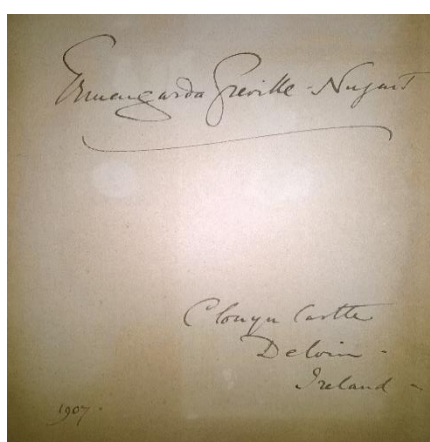 Ermengarda Greville-Nugent
Clonyn Castle
Delvin -
Ireland -
1907.